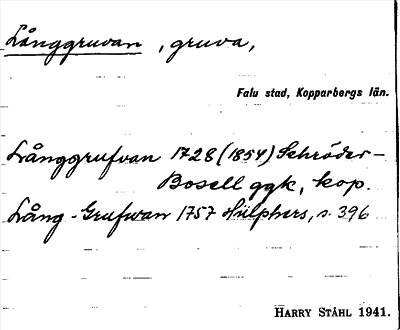 Långgruvan, gruva,
Falu stad, Kopparbergs län.
Långgrufvan 1728 (1854) Schröder-
Bosell ggk, kop.
Lång-Grufwan 1757 Hülphers, s. 396
HARRY STÅHL 1941.